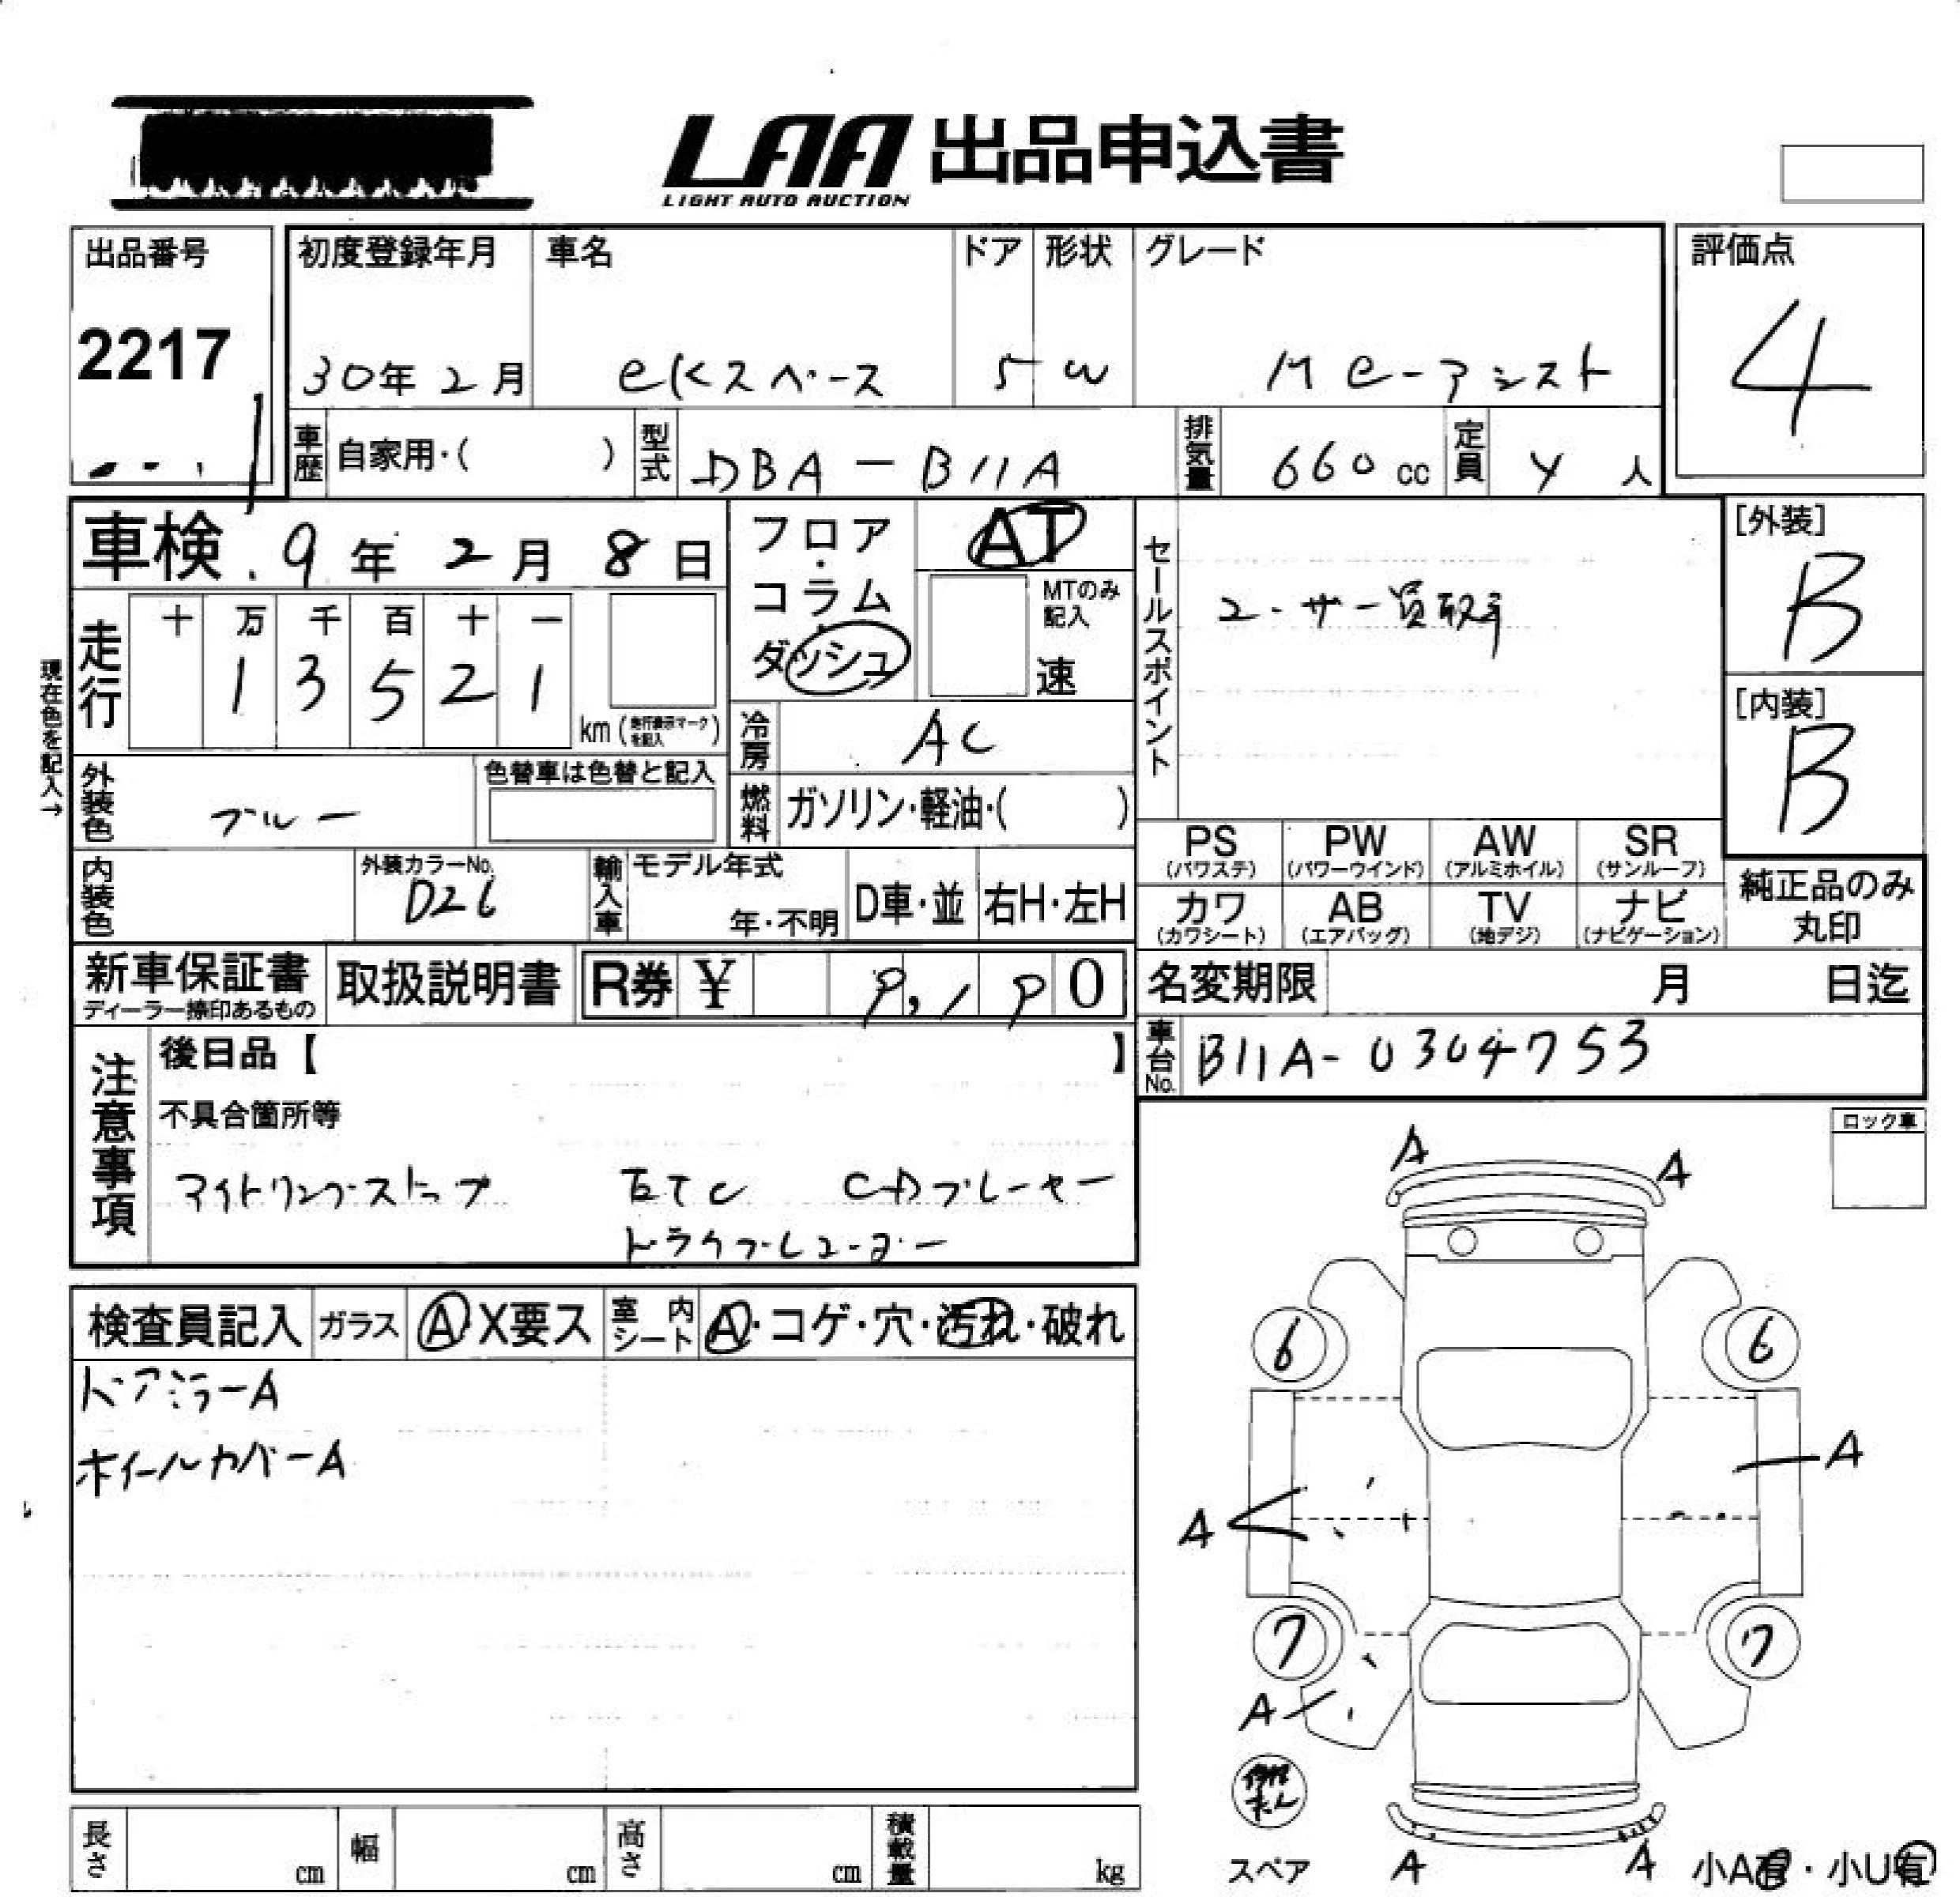 LAA 出品申込書
LIGHT AUTO AUCTION
出品番号
2217
初度登録年月
30年 2月
車名
eKスペース
ドア
5
形状
W
グレード
M e-アシスト
評価点
4
車歴 自家用・( )
型式 DBA-B11A
排気量 660 cc
定員 4 人
車検 9年 2月 8日
フロア・コラム・ダッシュ
AT
MTのみ記入
速
セールスポイント
ユーザー買取車
[外装]
B
[内装]
B
現在色を記入→
走行
十 万 千 百 十 一
1 3 5 2 1
km (走行表示マークを記入)
冷房 AC
外装色 ブルー
色替車は色替と記入
燃料 ガソリン・軽油・( )
PS (パワステ)
PW (パワーウインド)
AW (アルミホイル)
SR (サンルーフ)
カワ (カワシート)
AB (エアバッグ)
TV (地デジ)
ナビ (ナビゲーション)
純正品のみ
丸印
内装色
外装カラーNo.
D26
輸入車
モデル年式
年・不明
D車・並
右H・左H
新車保証書
ディーラー捺印あるもの
取扱説明書
R券 ¥ 0
名変期限 月 日迄
車台No. B11A-0304753
注意事項
後日品【 】
不具合箇所等
アイドリングストップ ETC CDプレーヤー
ドライブレコーダー
ロック車
検査員記入 ガラス A X要ス
室内シート A・コゲ・穴・汚れ・破れ
ドアミラーA
ホイールカバーA
A A
6 6
A
A
7 7
A
スペア
A A
小A有・小U有
長さ cm 幅 cm 高さ cm 積載量 kg